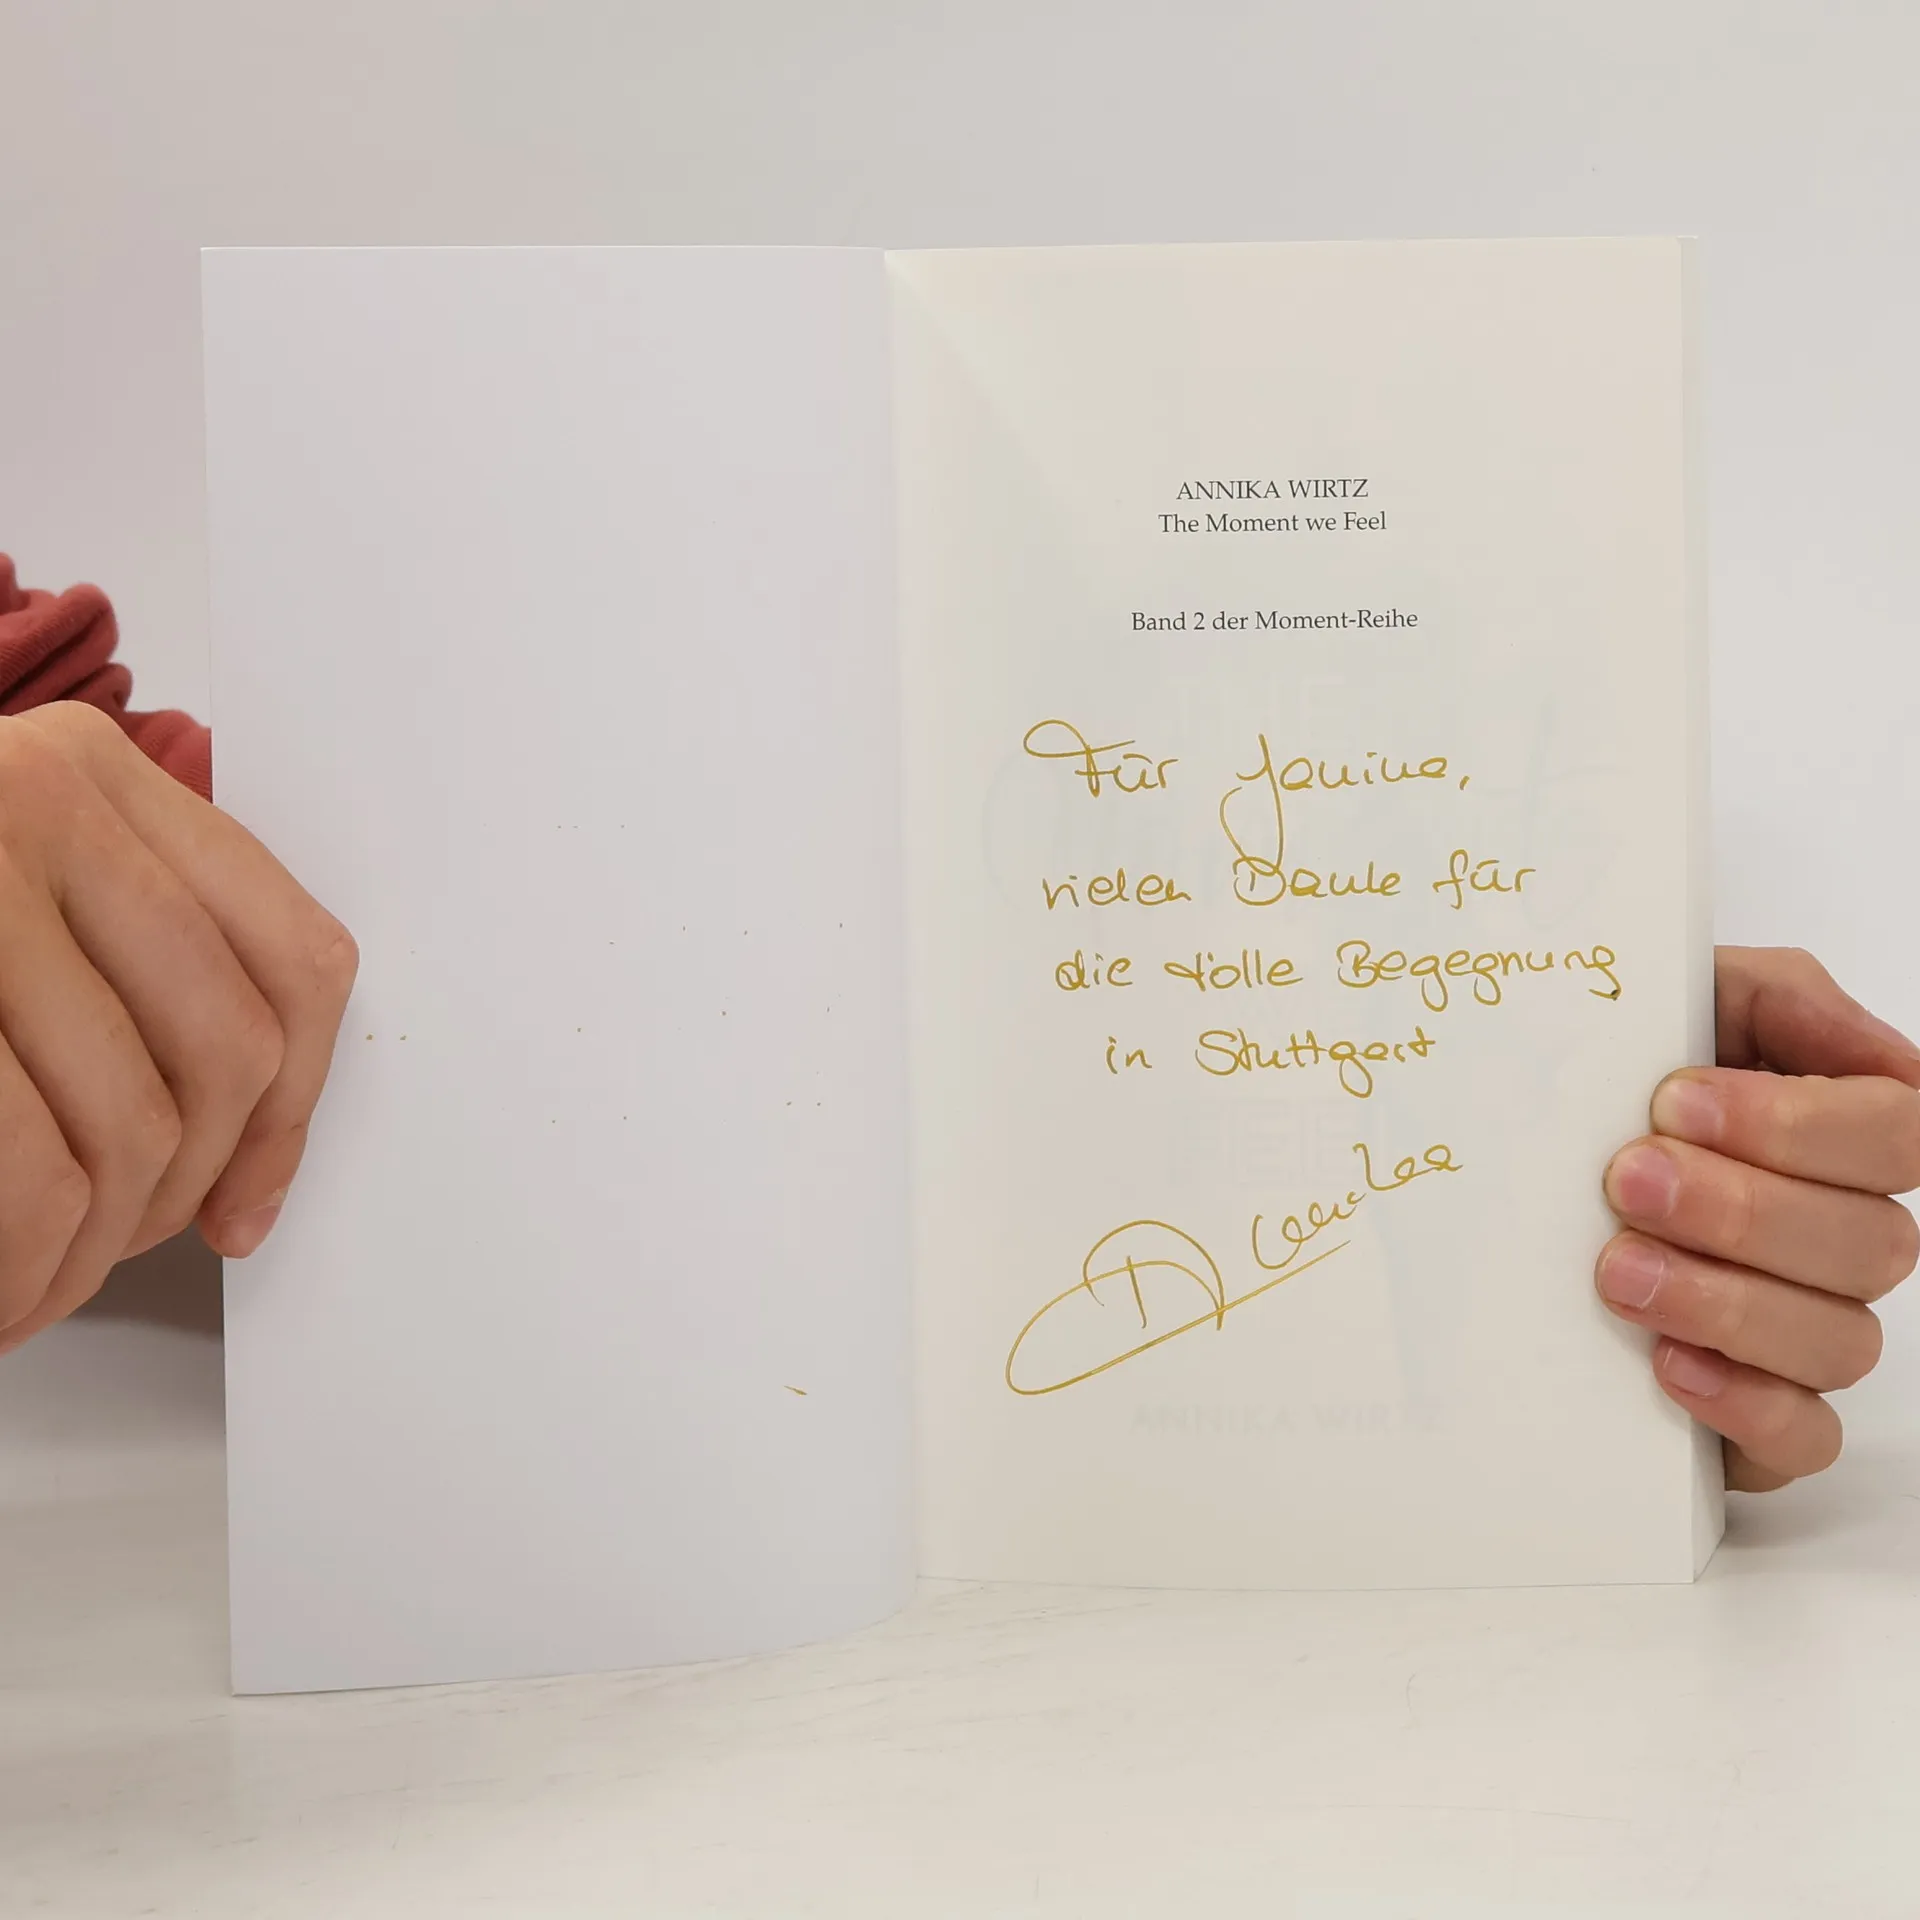 ANNIKA WIRTZ
The Moment we Feel
Band 2 der Moment-Reihe
Für Janina,
vielen Danke für
die tolle Begegnung
in Stuttgart
ANNIKA WIRTZ